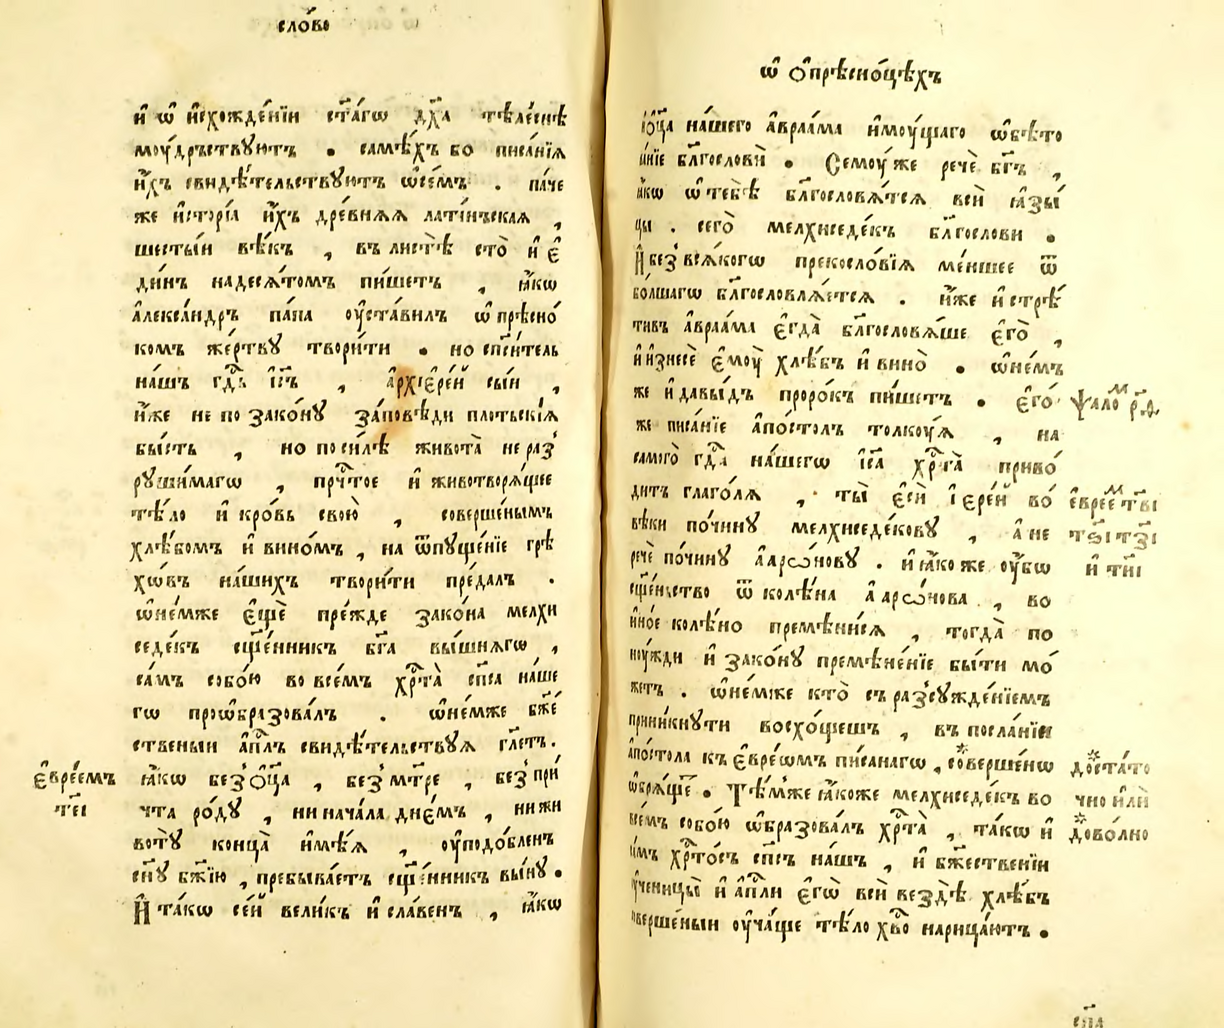 сло́во
и҆ ѡ҆ и҆схожде́нїи ст҃а́гѡ дх҃а тѣле́снѣ
моу́дръствуютъ . самѣ́хъ бо писа́нїѧ
и҆́хъ свидѣ́тельствуютъ ѡ҆семъ . па́че
же и҆сторі́а и҆́хъ дре́внѧѧ лати́нъскаѧ ,
шесты́и вѣ́къ , въ листѣ̀ сто̀ и҆ є҆
ди́нъ надесѧ́томъ пи́шетъ , ꙗ҆́кѡ
а҆леѯа́ндръ па́па оу҆ста́вилъ ѡ҆прѣсно́
комъ же́ртву твори́ти . но сп҃си́тель
на́шъ гд҇ь і҆с҃ъ , а҆рхїере́й сы́и ,
и҆́же не по зако́ну за́повѣди пло́тьскїѧ
бы́сть , но по си́лѣ живота̀ нераз̾
руши́магѡ , прч҇тое и҆ животворѧ́щее
тѣ́ло и҆ кро́вь свою̀ , соверше́нымъ
хлѣ́бомъ и҆ вино́мъ , на ѿпуще́нїе грѣ
хѡ́въ на́шихъ твори́ти пре́далъ .
ѡ҆не́мже є҆щѐ пре́жде зако́на мелхи
седе́къ сщ҃е́нникъ бг҃а вы́шнѧгѡ ,
са́мъ собо́ю во все́мъ хрⷭ҇та̀ сп҃са на́ше
гѡ проѡ҆бразова́лъ . ѡ҆не́мже бж҃е
ственыи а҆пⷭ҇лъ свидѣ́тельствуѧ гл҃етъ .
є҆вре́емъ ꙗ҆́кѡ без̾ ѻ҆ц҃а , без̾ мт҃ре , без̾ при́
чта ро́ду , ни нача́ла дне́мъ , ни жи
т҃еі
воту̀ конца̀ и҆мѣ́ѧ , оу҆подо́бленъ
сн҃у бж҃їю , пребыва́етъ сщ҃е́нникъ вы́ну .
И҆ та́кѡ се́й вели́къ и҆ сла́венъ , ꙗ҆́кѡ
ѡ҆ ѻ҆прѣсно́цѣхъ
ѻ҆ц҃а на́шего а҆враа́ма и҆моу́щаго ѡ҆бѣто
ва́нїе блгⷭ҇ослови̇̀ . Семоу́ же речѐ бг҃ъ ,
ꙗ҆́кѡ ѡ҆ тебѣ̀ блгⷭ҇ословѧ́тсѧ всѝ ꙗ҆зы́
цы . сего̀ мелхиседе́къ блгⷭ҇ослови .
И҆ без̾ всѧ́когѡ прекосло́вїѧ ме́ншее ѿ
бо́лшагѡ блгⷭ҇ословлѧ́етсѧ . и҆́же и҆ стрѣ́
тивъ а҆враа́ма є҆гда̀ блгⷭ҇ословѧ́ше є҆го̀ ,
и҆ и҆знесѐ є҆моу̀ хлѣ́бъ и҆ вино̀ . ѡ҆не́мъ
же и҆ давы́дъ проро́къ пи́шетъ . є҆го́
ѱало́ⷨ р҃ѳ.
же писа́нїе а҆по́столъ толкоу́ѧ , на
самого̀ гдⷭ҇а на́шегѡ і҆с҃а хрⷭ҇та̀ приво́
дитъ глаго́лѧ , ты̀ є҆сѝ і҆ере́й во́
є҆вре́еⷨ т҃ві
вѣки по́чину мелхиседе́кову , а҆ не
т҃ѕі т҃зі
речѐ по́чину а҆арѡ́нову . и҆ ꙗ҆́ко же оу҆́бѡ
и҆ т҃иі
сщ҃е́ньство ѿ колѣ́на а҆арѡ́нова , во
и҆но́е колѣ́но премѣни́сѧ , тогда̀ по
ноу́жди и҆ зако́ну премѣне́нїе бы́ти мо́
жетъ . ѡ҆не́мже кто̀ съ раз̾сужде́нїемъ
прини́кнути восхо́щешъ , въ посла́нїи
а҆по́стола къ є҆вре́ѡмъ пи́санагѡ , *соверше́нѡ
*доста́то
ѡ҆брѧ́ще́ши . Тѣ́мже ꙗ҆́коже мелхиседе́къ во
чно и҆лѝ
все́мъ собо́ю ѡ҆бразова́лъ хрⷭ҇та̀ , та́кѡ и҆
*дово́лно
са́мъ хрⷭ҇то́съ сп҃съ на́шъ , и҆ бж҃е́ственїи
оу҆ченицы̀ и҆ а҆пⷭ҇ли є҆гѡ̀ всѝ вездѣ̀ хлѣ́бъ
соверше́ныи оу҆ча́ще тѣ́ло хв҃о нарица́ютъ .